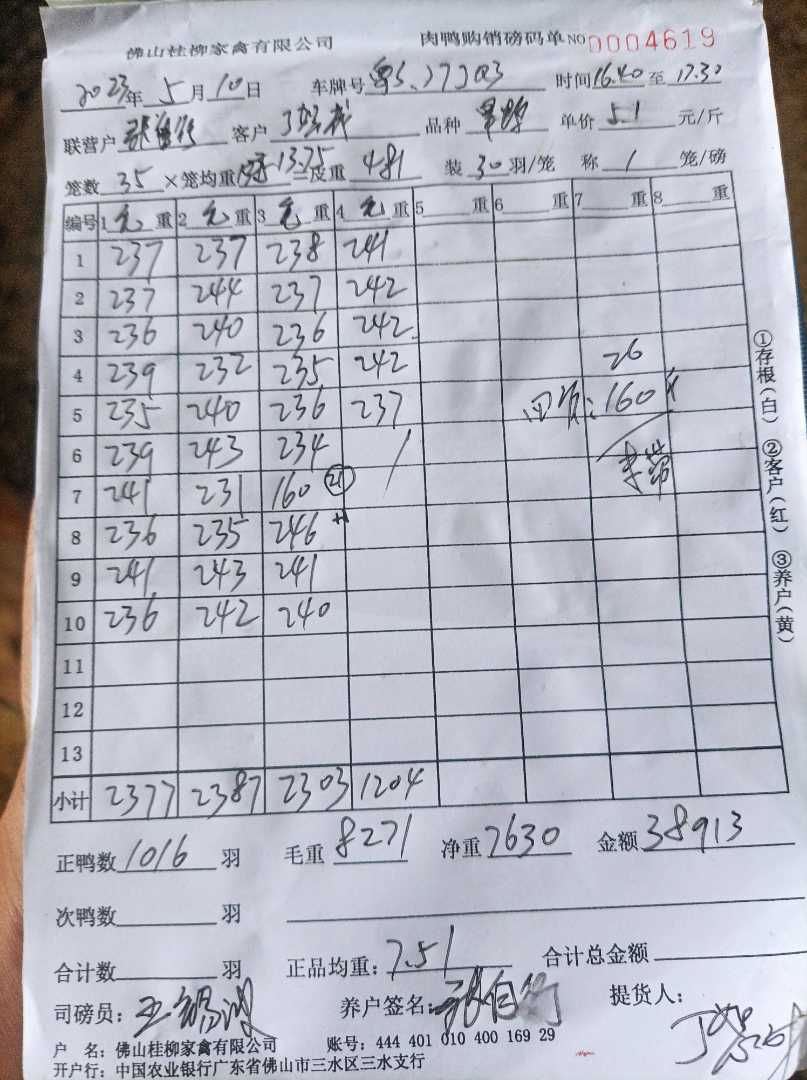 佛山桂柳家禽有限公司 肉鸭购销磅码单 NO 0004619
2023年5月10日 车牌号 时间16.40至17.30
联营户 客户 品种 单价5.1元/斤
笼数35×笼均重13.75=皮重481 装30羽/笼 称1笼/磅
编号 1毛重 2毛重 3毛重 4毛重 5重 6重 7重 8重
1 237 237 238 241
2 237 244 237 242
3 236 240 236 242
4 239 232 235 242 26
5 235 240 236 237 160
6 239 243 234 /
7 241 231 160
8 236 235 246
9 241 243 241
10 236 242 240
11
12
13
小计 2377 2387 2303 1204
正鸭数1016羽 毛重8271 净重7630 金额38913
次鸭数 羽
合计数 羽 正品均重:7.51 合计总金额
司磅员: 养户签名: 提货人:
户 名:佛山桂柳家禽有限公司 账号:444 401 010 400 169 29
开户行:中国农业银行广东省佛山市三水区三水支行
①存根(白) ②客户(红) ③养户(黄)